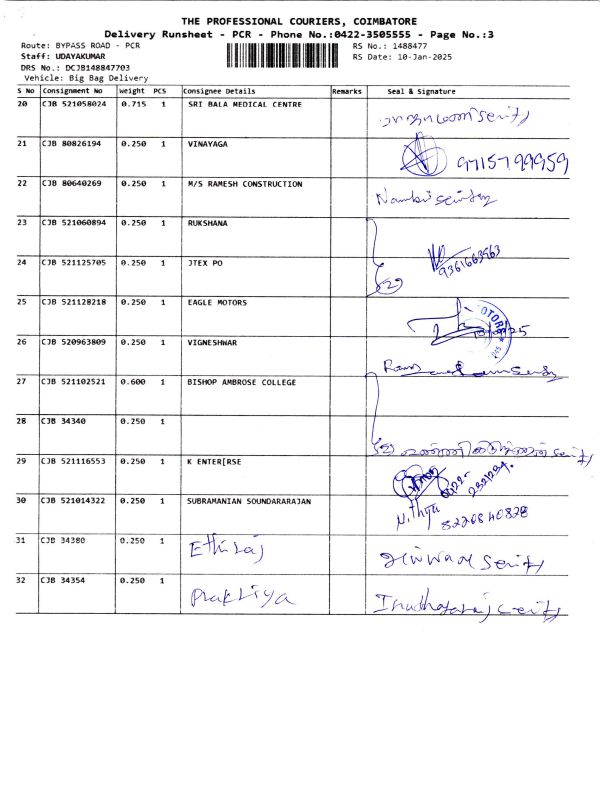 THE PROFESSIONAL COURIERS, COIMBATORE
Delivery Runsheet - PCR - Phone No.:0422-3505555 - Page No.:3
Route: BYPASS ROAD - PCR RS No.: 1488477
Staff: UDAYAKUMAR RS Date: 10-Jan-2025
DRS No.: DCJB148847703
Vehicle: Big Bag Delivery
S No Consignment No Weight PCS Consignee Details Remarks Seal & Signature
20 CJB 521058024 0.715 1 SRI BALA MEDICAL CENTRE
21 CJB 80826194 0.250 1 VINAYAGA 9715799959
22 CJB 80640269 0.250 1 M/S RAMESH CONSTRUCTION
23 CJB 521060894 0.250 1 RUKSHANA
24 CJB 521125705 0.250 1 JTEX PO 9361663563
25 CJB 521128218 0.250 1 EAGLE MOTORS
26 CJB 520963809 0.250 1 VIGNESHWAR
27 CJB 521102521 0.600 1 BISHOP AMBROSE COLLEGE
28 CJB 34340 0.250 1
29 CJB 521116553 0.250 1 K ENTER[RSE
30 CJB 521014322 0.250 1 SUBRAMANIAN SOUNDARARAJAN N.thya 8220840828
31 CJB 34380 0.250 1 Ethiraj
32 CJB 34354 0.250 1 Prakriya